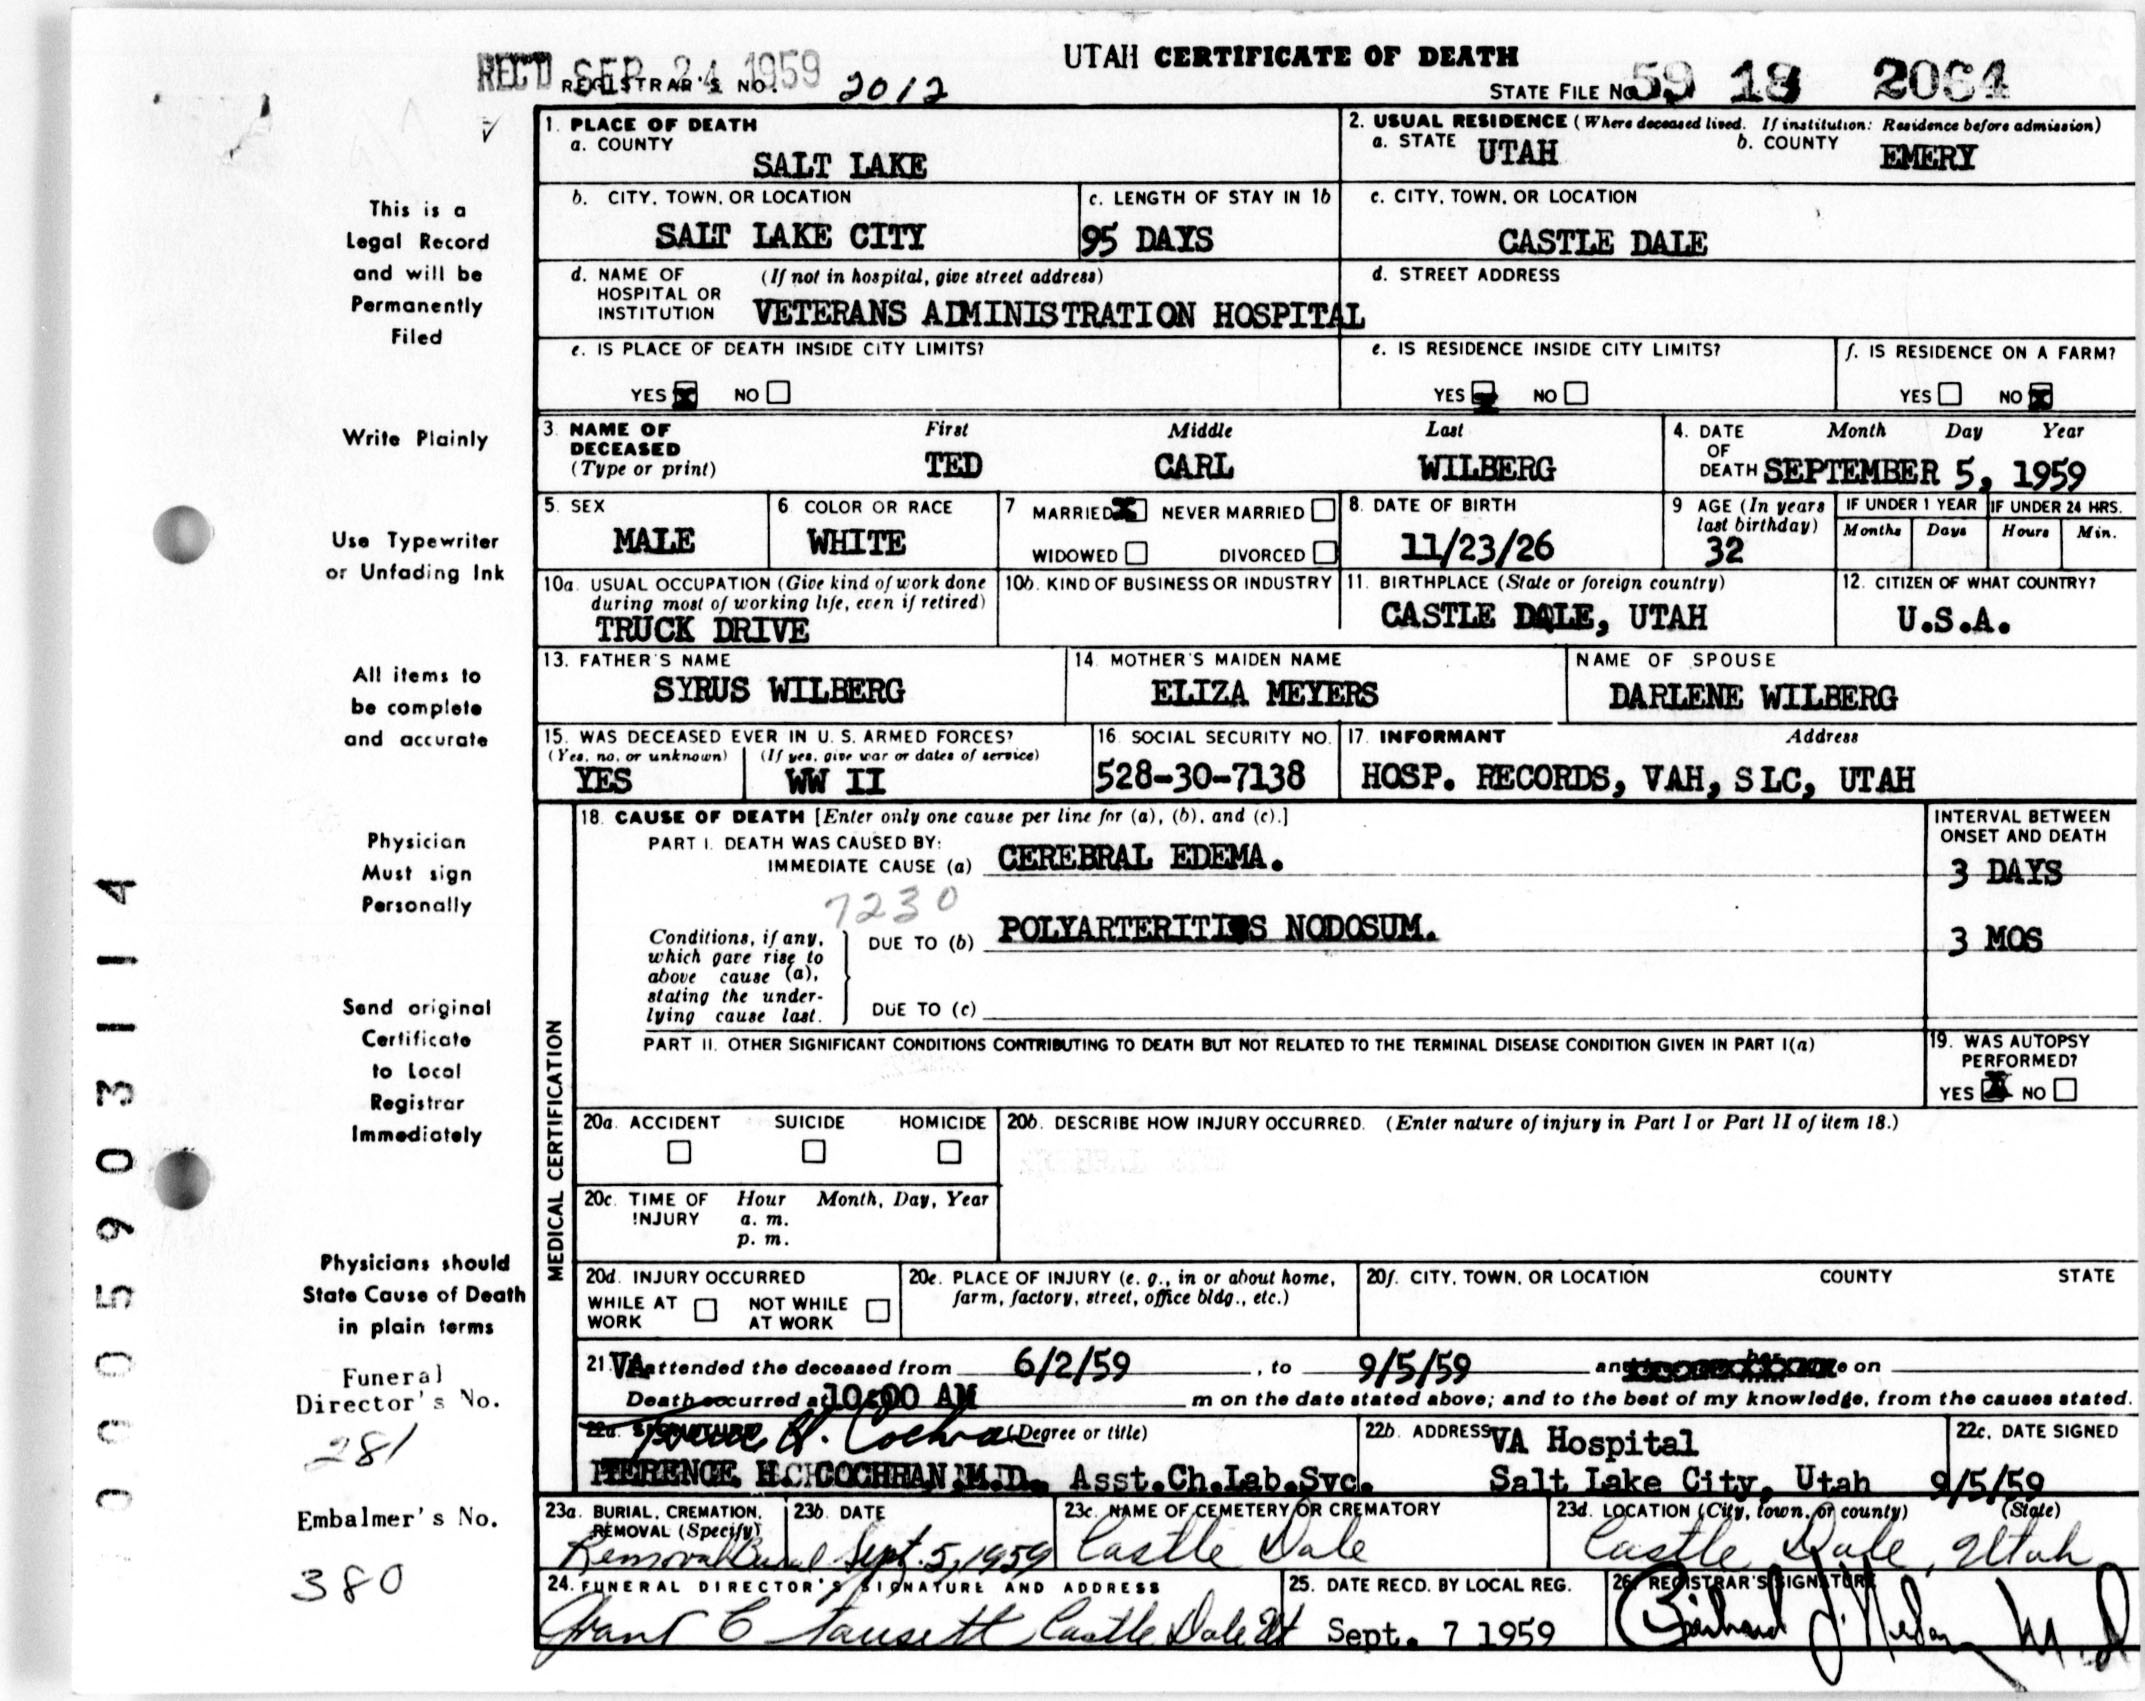 UTAH CERTIFICATE OF DEATH
REC'D SEP 24 1959
REGISTRAR'S NO. 2012
STATE FILE No. 59 18 2064
1. PLACE OF DEATH
a. COUNTY
SALT LAKE
2. USUAL RESIDENCE (Where deceased lived. If institution: Residence before admission)
a. STATE UTAH b. COUNTY EMERY
b. CITY, TOWN, OR LOCATION
SALT LAKE CITY
c. LENGTH OF STAY IN 1b
95 DAYS
c. CITY, TOWN, OR LOCATION
CASTLE DALE
d. NAME OF HOSPITAL OR INSTITUTION (If not in hospital, give street address)
VETERANS ADMINISTRATION HOSPITAL
d. STREET ADDRESS
e. IS PLACE OF DEATH INSIDE CITY LIMITS?
YES X NO
e. IS RESIDENCE INSIDE CITY LIMITS?
YES NO
f. IS RESIDENCE ON A FARM?
YES NO X
3. NAME OF DECEASED (Type or print)
First Middle Last
TED CARL WILBERG
4. DATE OF DEATH Month Day Year
SEPTEMBER 5, 1959
5. SEX
MALE
6. COLOR OR RACE
WHITE
7 MARRIED X NEVER MARRIED
WIDOWED DIVORCED
8. DATE OF BIRTH
11/23/26
9 AGE (In years last birthday)
32
IF UNDER 1 YEAR IF UNDER 24 HRS.
Months Days Hours Min.
10a. USUAL OCCUPATION (Give kind of work done during most of working life, even if retired)
TRUCK DRIVE
10b. KIND OF BUSINESS OR INDUSTRY
11. BIRTHPLACE (State or foreign country)
CASTLE DALE, UTAH
12. CITIZEN OF WHAT COUNTRY?
U.S.A.
13. FATHER'S NAME
SYRUS WILBERG
14. MOTHER'S MAIDEN NAME
ELIZA MEYERS
NAME OF SPOUSE
DARLENE WILBERG
15. WAS DECEASED EVER IN U. S. ARMED FORCES?
(Yes, no, or unknown) (If yes, give war or dates of service)
YES WW II
16. SOCIAL SECURITY NO.
528-30-7138
17. INFORMANT Address
HOSP. RECORDS, VAH, SLC, UTAH
MEDICAL CERTIFICATION
18. CAUSE OF DEATH [Enter only one cause per line for (a), (b), and (c).]
INTERVAL BETWEEN ONSET AND DEATH
PART I. DEATH WAS CAUSED BY:
IMMEDIATE CAUSE (a) CEREBRAL EDEMA. 3 DAYS
7230
Conditions, if any, which gave rise to above cause (a), stating the underlying cause last.
DUE TO (b) POLYARTERITIS NODOSUM. 3 MOS
DUE TO (c)
PART II. OTHER SIGNIFICANT CONDITIONS CONTRIBUTING TO DEATH BUT NOT RELATED TO THE TERMINAL DISEASE CONDITION GIVEN IN PART I(a)
19. WAS AUTOPSY PERFORMED?
YES X NO
20a. ACCIDENT SUICIDE HOMICIDE
20b. DESCRIBE HOW INJURY OCCURRED. (Enter nature of injury in Part I or Part II of item 18.)
20c. TIME OF INJURY Hour Month, Day, Year
a. m.
p. m.
20d. INJURY OCCURRED
WHILE AT WORK NOT WHILE AT WORK
20e. PLACE OF INJURY (e. g., in or about home, farm, factory, street, office bldg., etc.)
20f. CITY, TOWN, OR LOCATION COUNTY STATE
21. VA attended the deceased from 6/2/59, to 9/5/59 on
Death occurred at 10:00 AM m on the date stated above; and to the best of my knowledge, from the causes stated.
22a. SIGNATURE Terence H. Cochran (Degree or title)
TERENCE H. COCHRAN, M.D. Asst.Ch.Lab.Svc.
22b. ADDRESS VA Hospital
Salt Lake City, Utah
22c. DATE SIGNED
9/5/59
23a. BURIAL, CREMATION, REMOVAL (Specify)
Removal Burial
23b. DATE
Sept. 5, 1959
23c. NAME OF CEMETERY OR CREMATORY
Castle Dale
23d. LOCATION (City, town, or county) (State)
Castle Dale, Utah
24. FUNERAL DIRECTOR'S SIGNATURE AND ADDRESS
Grant C Fausett Castle Dale Ut
25. DATE RECD. BY LOCAL REG.
Sept. 7 1959
26. REGISTRAR'S SIGNATURE
This is a
Legal Record
and will be
Permanently
Filed
Write Plainly
Use Typewriter
or Unfading Ink
All items to
be complete
and accurate
Physician
Must sign
Personally
Send original
Certificate
to Local
Registrar
Immediately
Physicians should
State Cause of Death
in plain terms
Funeral
Director's No.
281
Embalmer's No.
380
0005903114